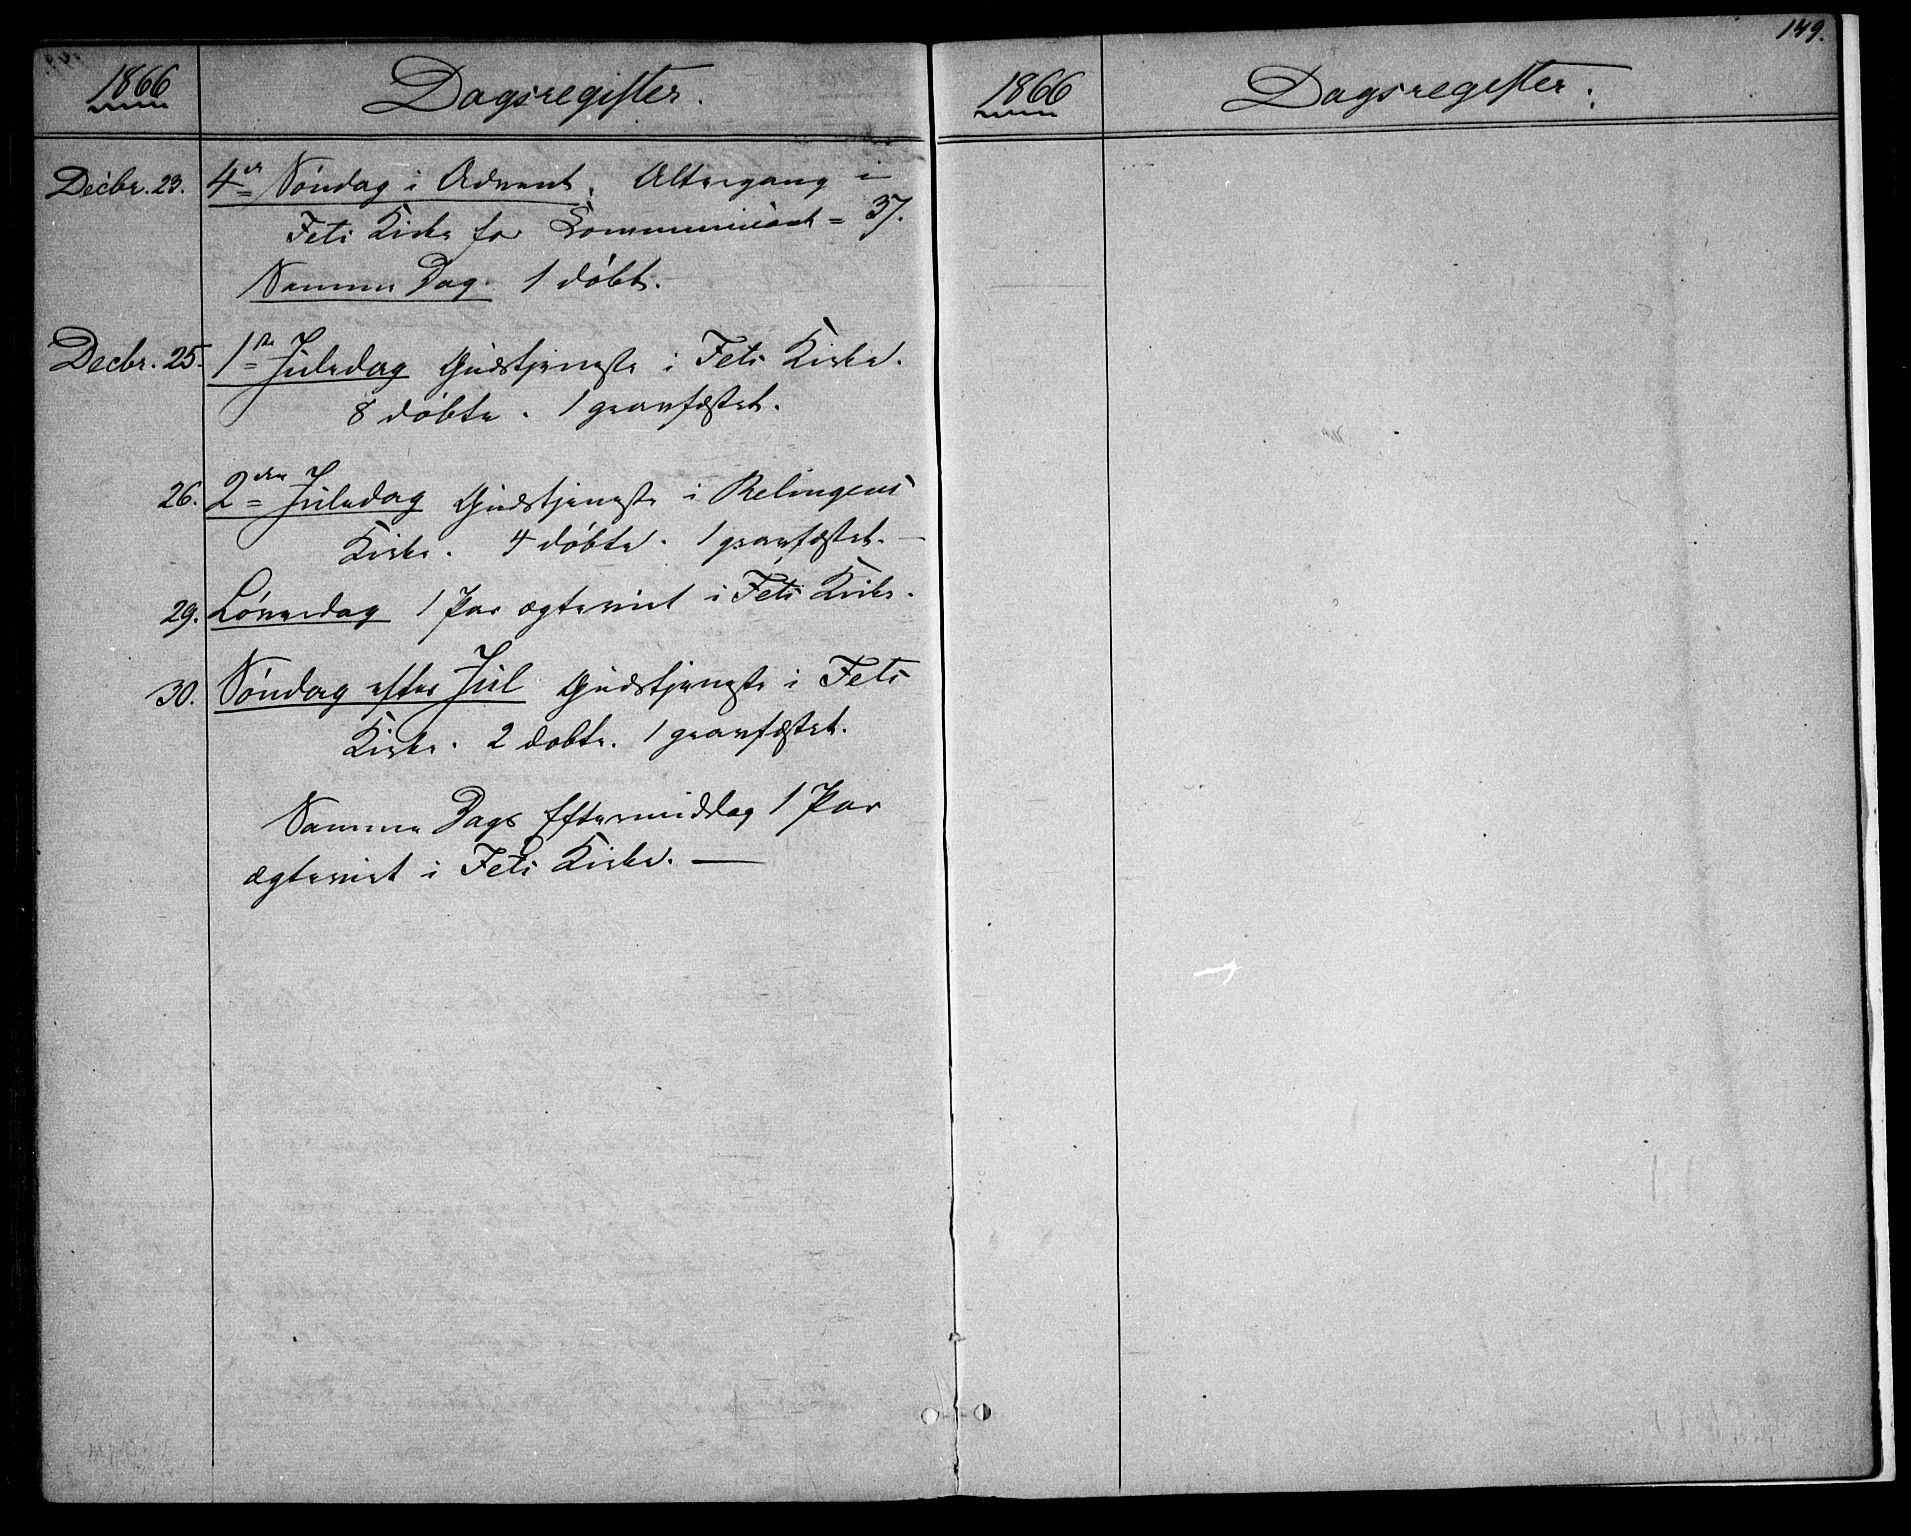 1866
Dagsregister.
Decbr. 23. 4de Søndag i Advent. Altergang i
Fets Kirke for Communicant = 37.
Samme Dag 1 døbt.
Decbr. 25. 1ste Juledag Gudstjeneste i Fets Kirke.
8 døbte. 1 gravfæstet.
26. 2den Juledag Gudstjeneste i Relingens
Kirke. 4 døbte. 1 gravfæstet. —
29. Løverdag 1 Par ægteviet i Fets Kirke.
30. Søndag efter Jul Gudstjeneste i Fets
Kirke. 2 døbte. 1 gravfæstet.
Samme Dags Eftermiddag 1 Par
ægteviet i Fets Kirke. —
149.
1866
Dagsregister.